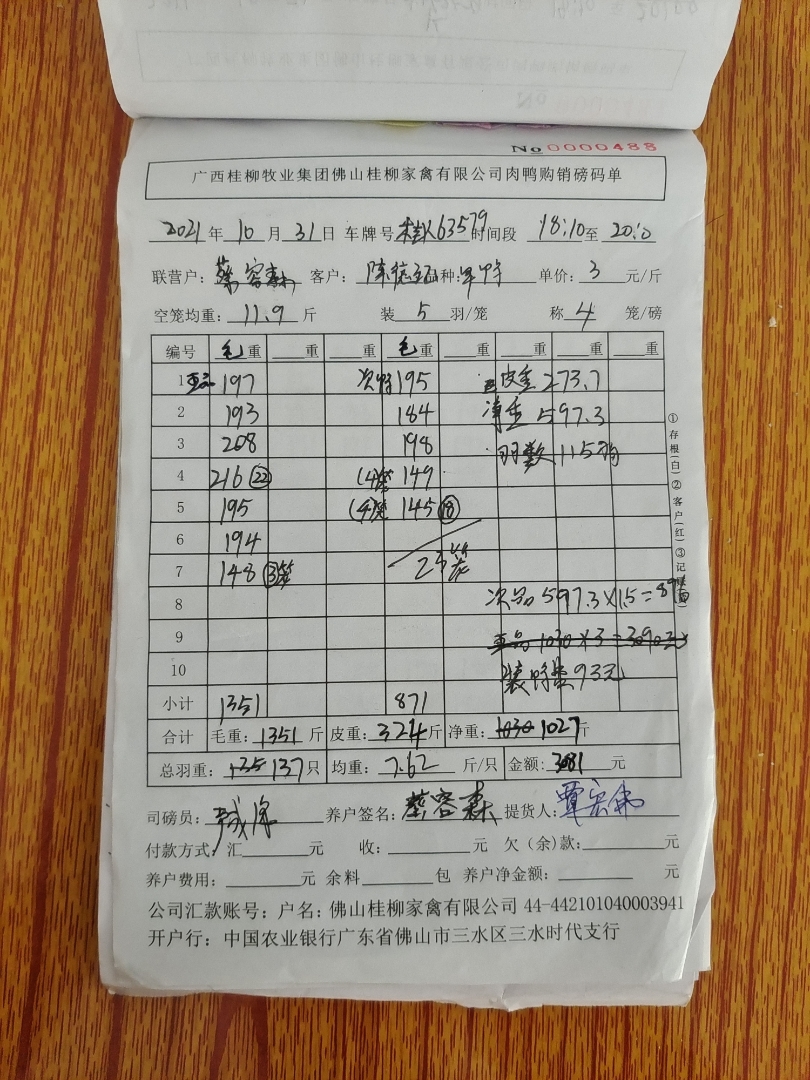 No 0000488
广西桂柳牧业集团佛山桂柳家禽有限公司肉鸭购销磅码单
2021年 10月 31日 车牌号 63579 时间段 18:10至 20:10
联营户: 蔡容森 客户: 陈 品种: 单价: 3 元/斤
空笼均重: 11.9 斤 装 5 羽/笼 称 4 笼/磅
编号 毛重 重 重 毛重 重 重 重 重
1 正品 197 次 195 皮重 273.7
2 193 184 净重 597.3
3 208 198 羽数 115羽
4 216 22 (4笼) 149
5 195 (4笼) 145 18
6 194
7 148 3笼 23笼
8 次品 597.3×1.5=
9 正品 1030×3=3090元
10 93元
小计 1351 871
合计 毛重: 1351 斤 皮重: 324 斤 净重: 1030 1027 斤
总羽重: 135 137 只 均重: 7.62 斤/只 金额: 3081 元
司磅员: 养户签名: 蔡容森 提货人: 覃宏伟
付款方式: 汇 元 收: 元 欠(余)款: 元
养户费用: 元 余料 包 养户净金额: 元
公司汇款账号: 户名: 佛山桂柳家禽有限公司 44-442101040003941
开户行: 中国农业银行广东省佛山市三水区三水时代支行
①存根(白)②客户(红)③记